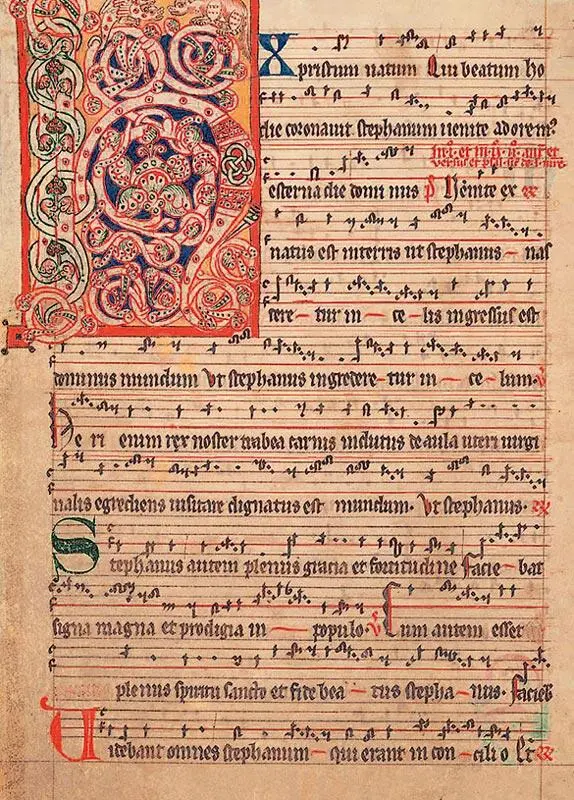 Xpristum natum Qui beatum ho
die coronavit stephanum venite adorem⁹
esterna die domi nus
natus est interris ut stephanus — nas
cere — tur in — ce — lis ingressus est
dominus mundum Ut stephanus ingredere — tur in — ce — lum.
He ri enim rex noster trabea carnis indutus de aula uteri virgi
nalis egrediens visitare dignatus est mundum. Ut stephanus.
Stephanus autem plenus gracia et fortitudine facie — bat
signa magna et prodigia in — populo. V Cum autem esset
plenus spiritu sancto et fide bea — tus stepha — nus. facieb
Videbant omnes stephanum — qui erant in con — cili o Et